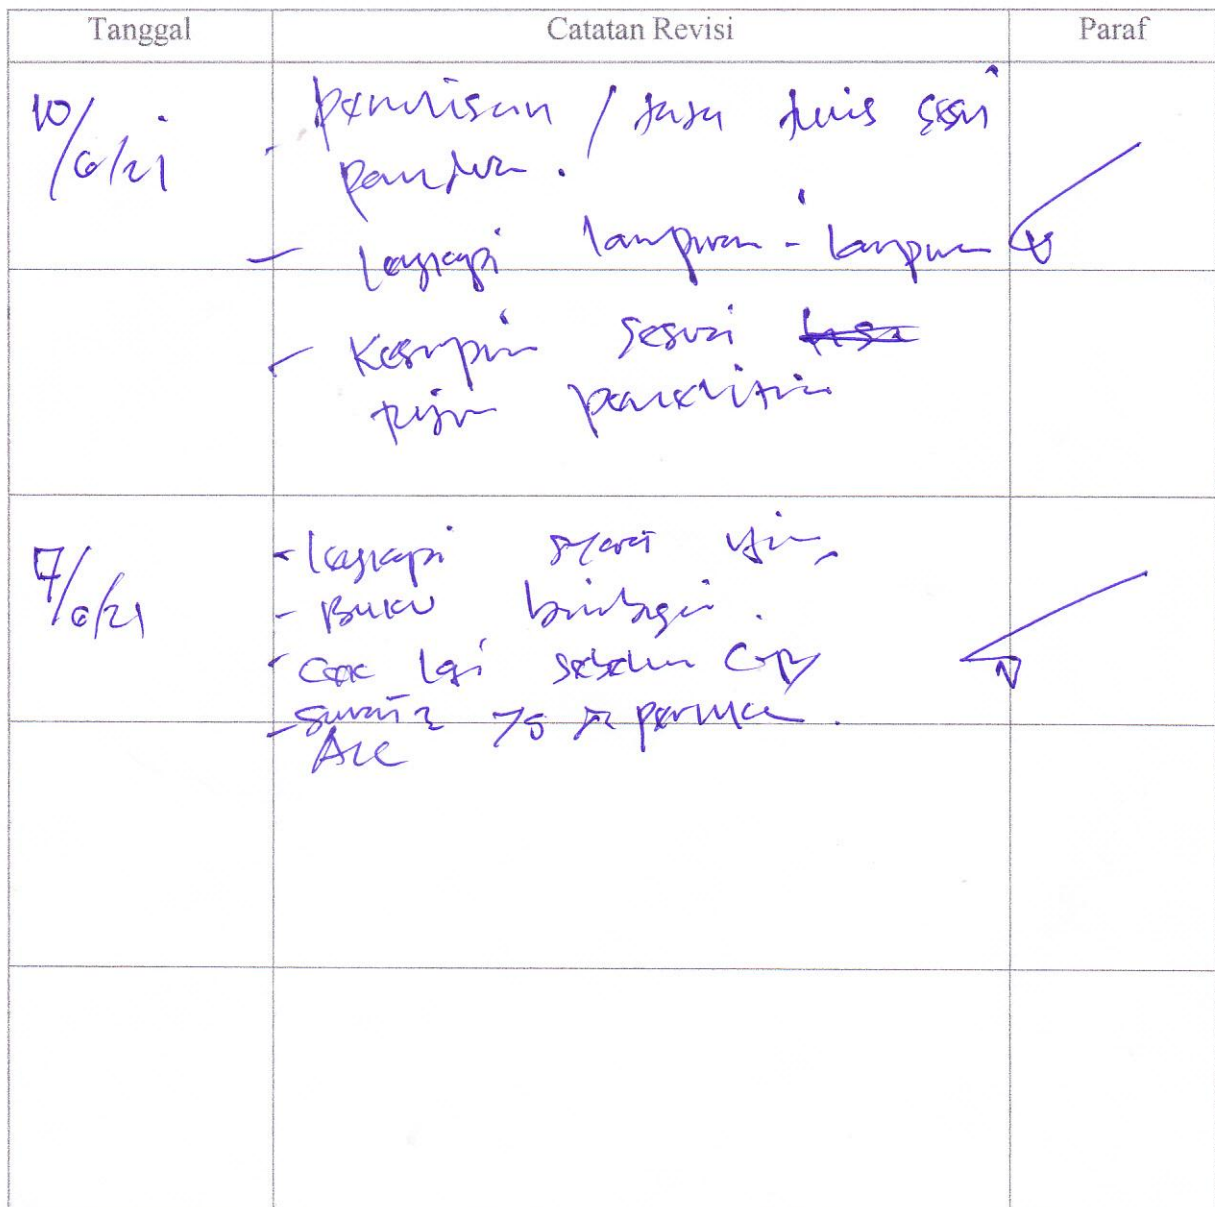 Tanggal Catatan Revisi Paraf
10/6/21 - penulisan / tata tulis sesuai
panduan.
- lengkapi lampiran - lampiran
- Kesimpulan sesuai
tujuan penelitian
7/6/21 - lengkapi syarat ujian,
- Buku bimbingan.
- cek lagi sebelum copy
- surat2 yg
Acc